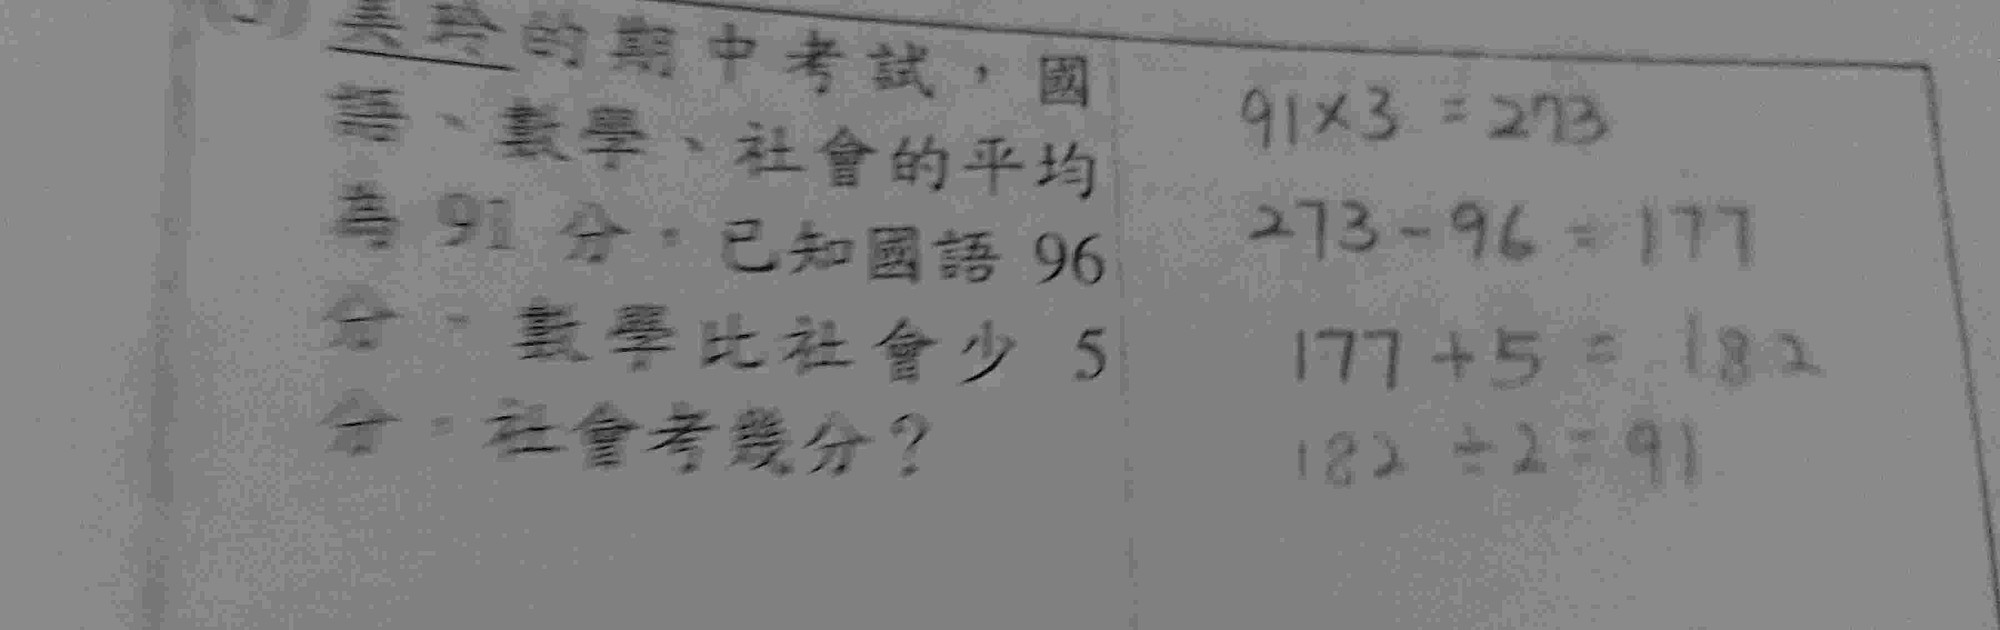 的期中考試,國
語、數學、社會的平均
為 91 分。已知國語 96
分,數學比社會少 5
分,社會考幾分?
91×3 = 273
273-96 = 177
177+5 = 182
182 ÷2=91